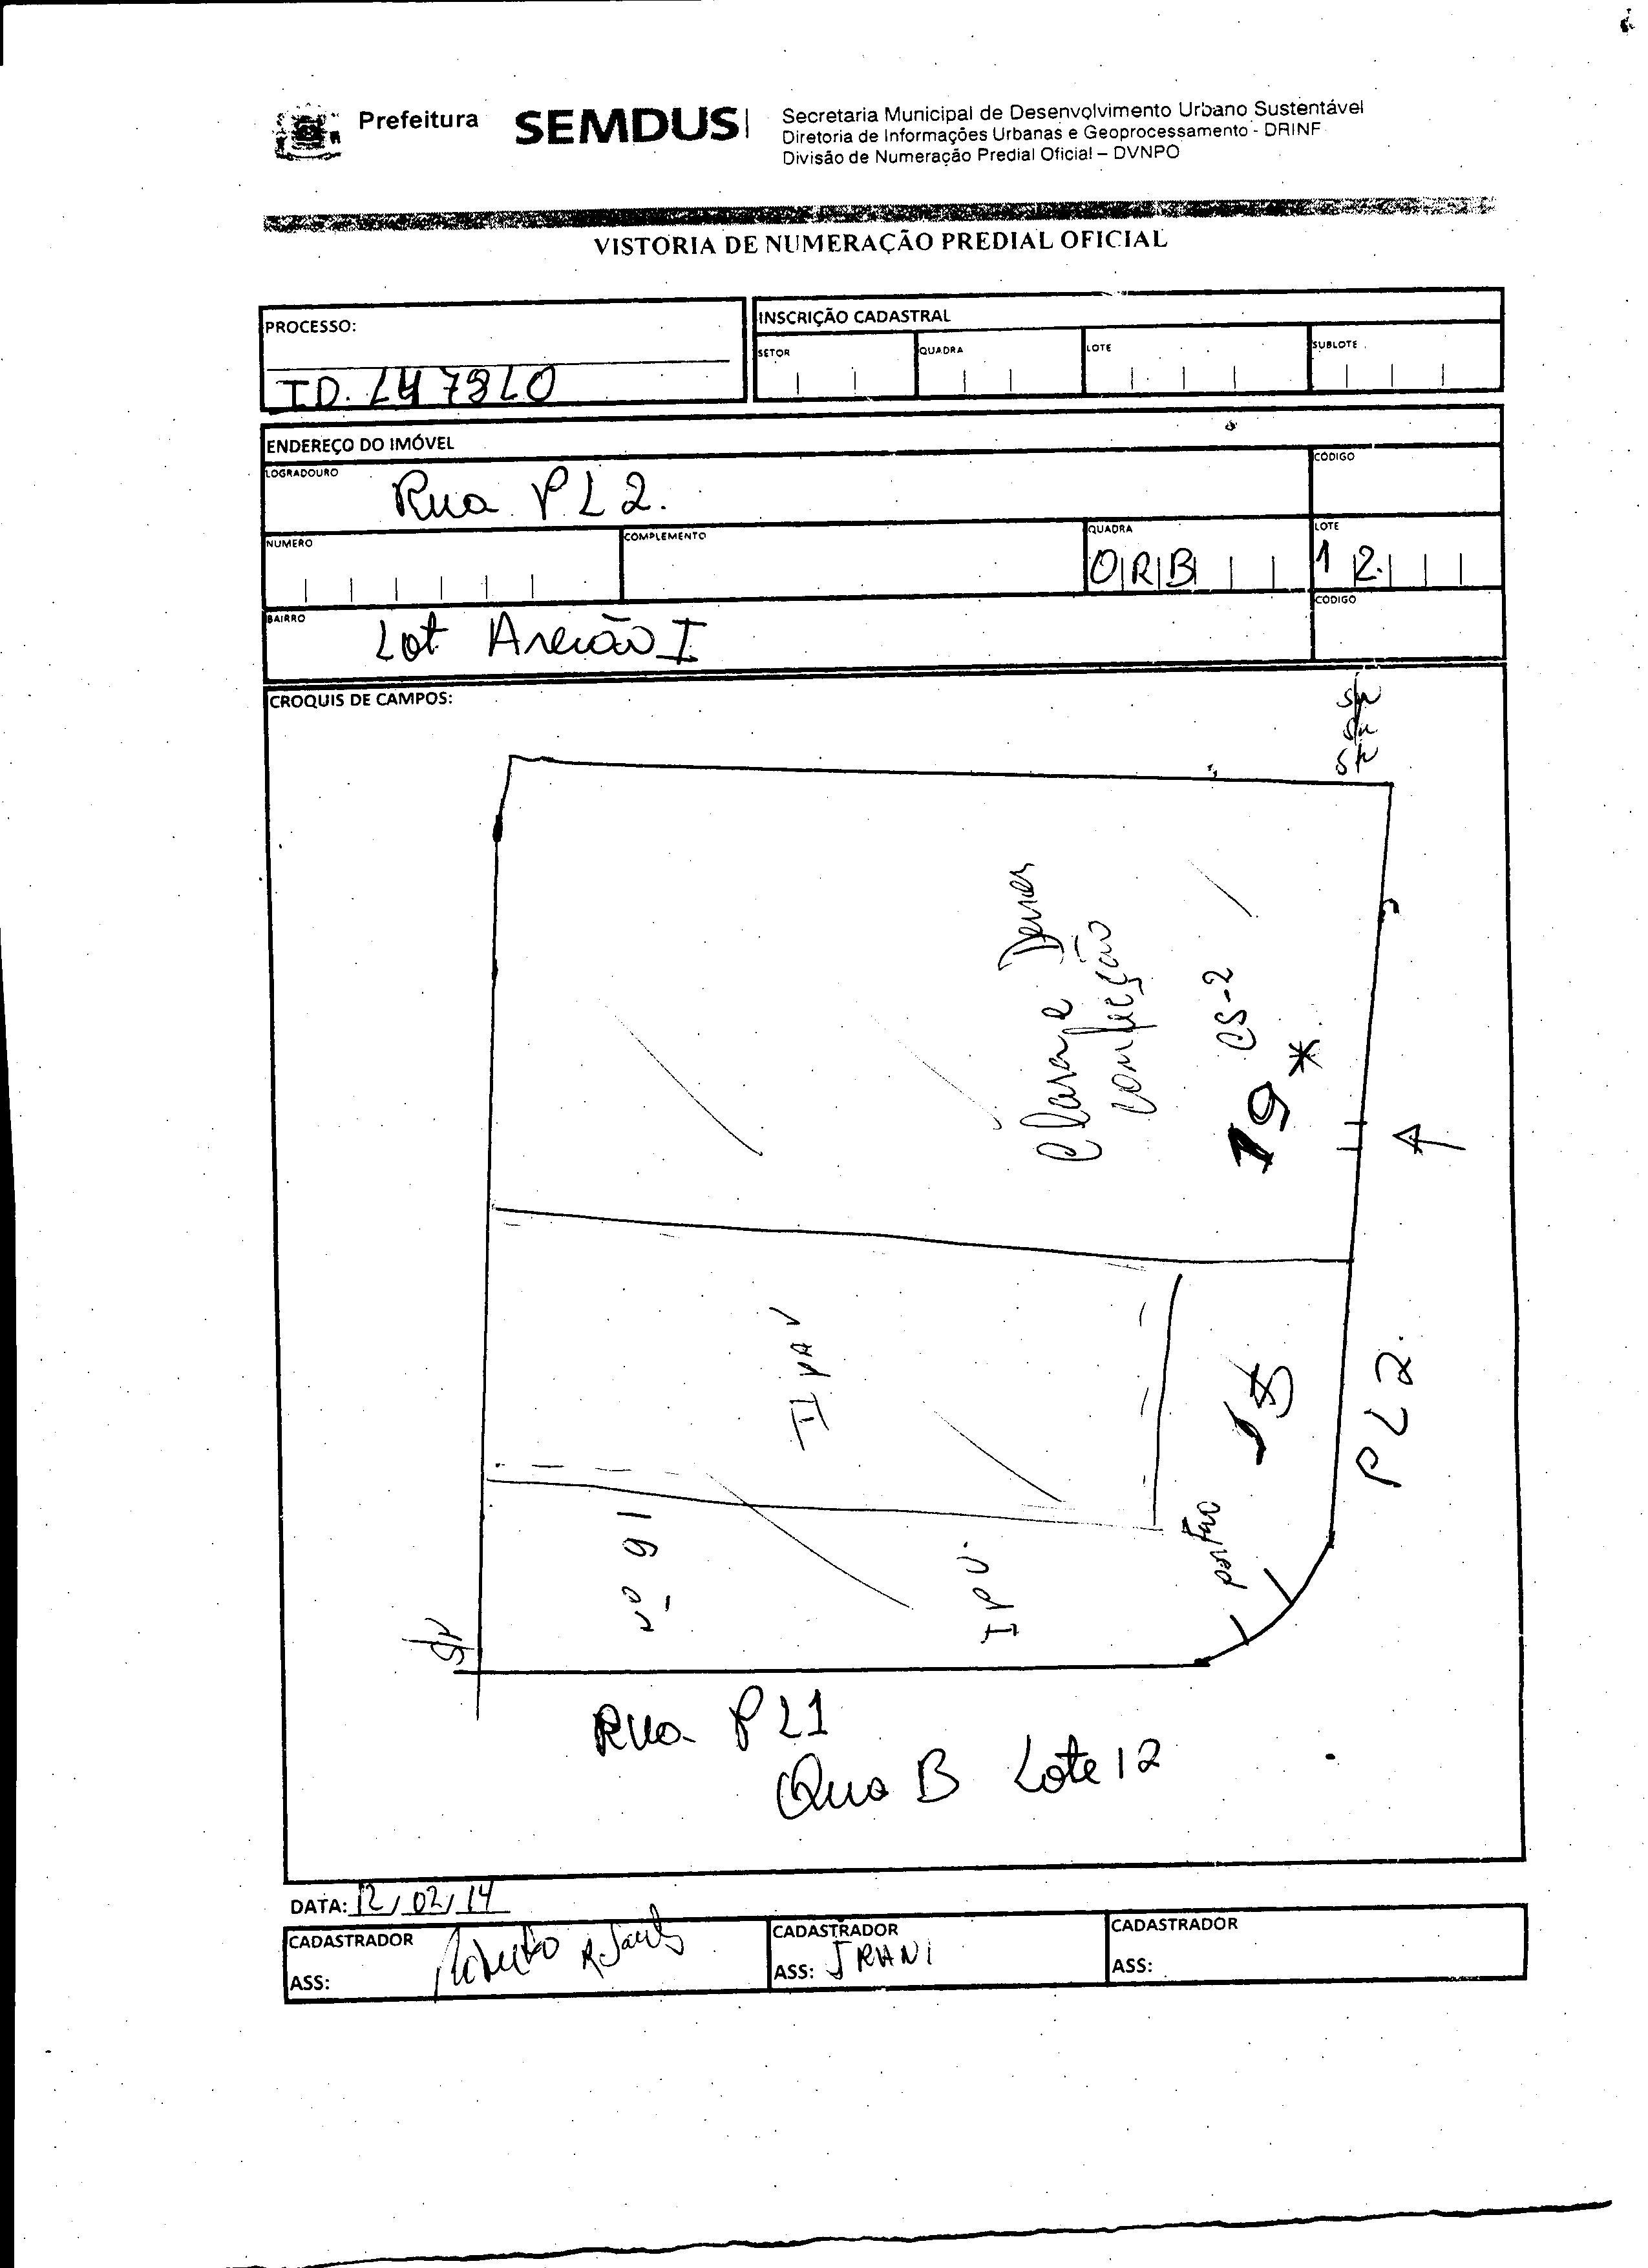 Prefeitura SEMDUS
Secretaria Municipal de Desenvolvimento Urbano Sustentável
Diretoria de Informações Urbanas e Geoprocessamento - DRINF
Divisão de Numeração Predial Oficial – DVNPO
VISTORIA DE NUMERAÇÃO PREDIAL OFICIAL
PROCESSO:
INSCRIÇÃO CADASTRAL
SETOR QUADRA LOTE SUBLOTE
ID.
ENDEREÇO DO IMÓVEL
LOGRADOURO CODIGO
Rua PL2.
NUMERO COMPLEMENTO QUADRA LOTE
ORB 12.
BAIRRO CODIGO
Lot Areião I
CROQUIS DE CAMPOS:
confecção
CS-2
19 *
II PAV
15
PL2.
portão
Nº 91
I PV.
Rua PL1
Qua B Lote 12
DATA: 12/02/14
CADASTRADOR CADASTRADOR CADASTRADOR
ASS: Roberto ASS: IRANI ASS: